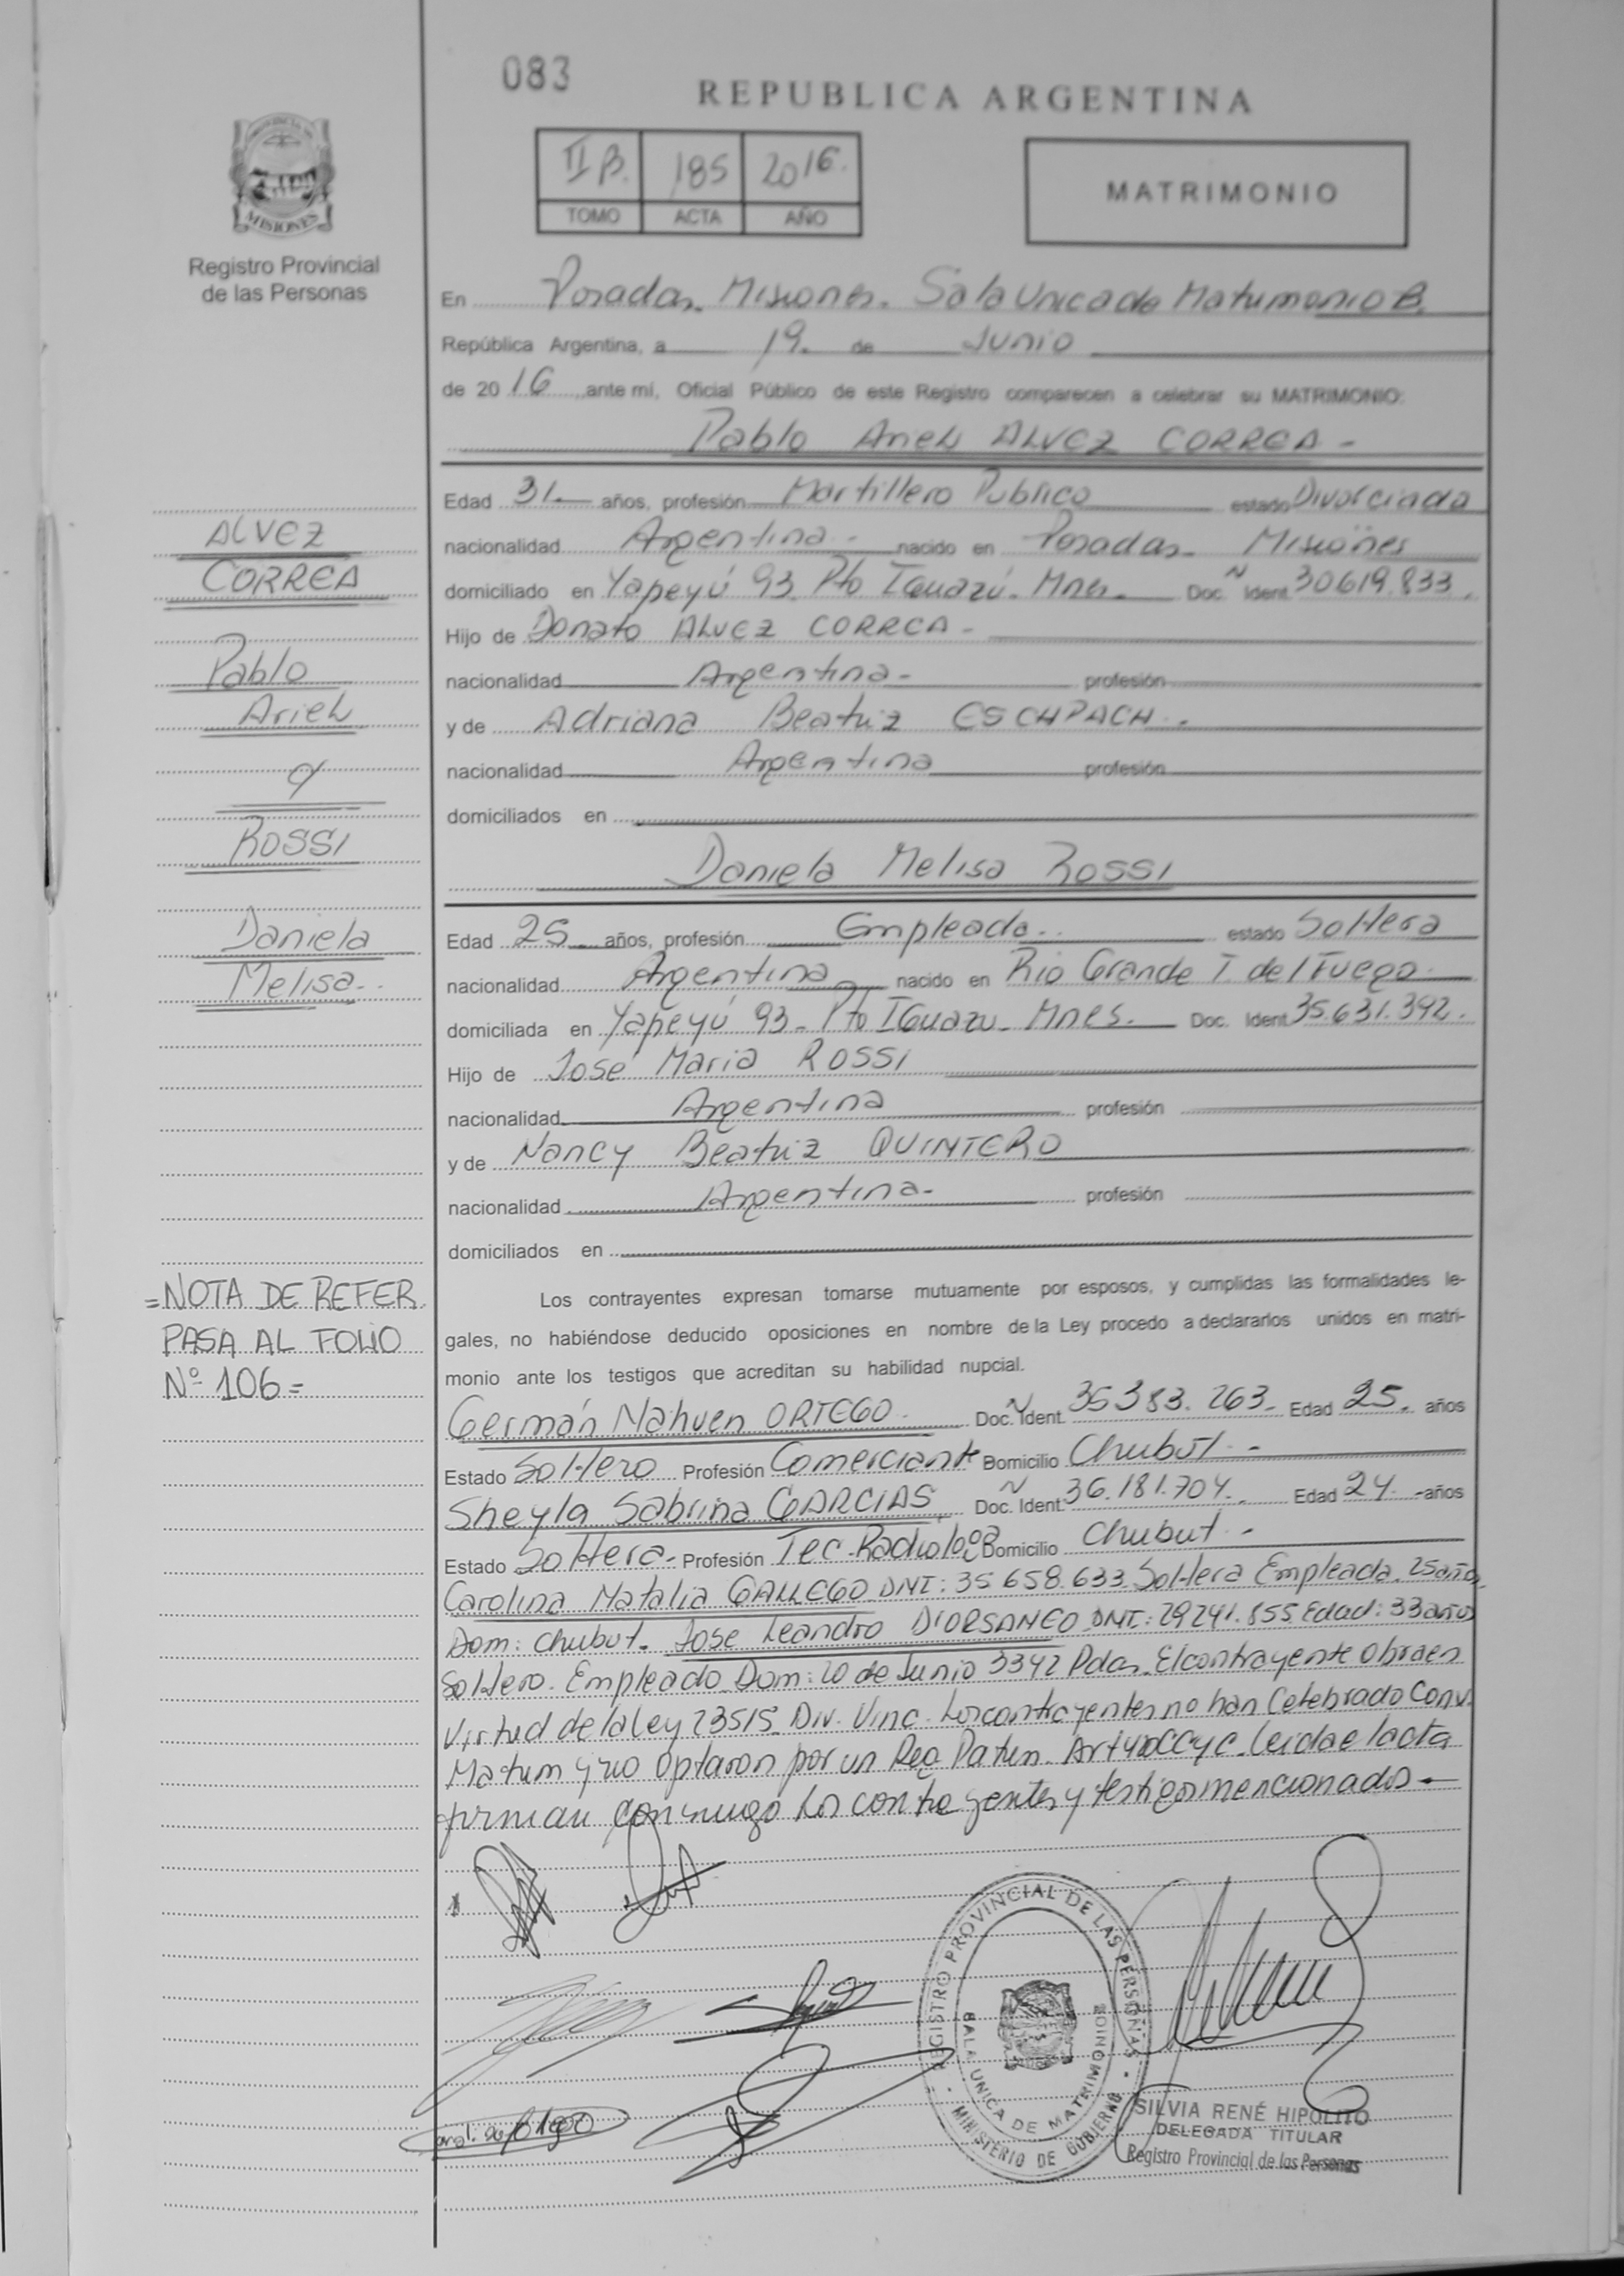 083
REPUBLICA ARGENTINA
II B. 185 2016.
TOMO ACTA AÑO
MATRIMONIO
MISIONES
Registro Provincial
de las Personas
En Posadas. Misiones. Sala Unica de Matrimonio B.
República Argentina, a 19. de Junio
de 2016 ante mí, Oficial Público de este Registro comparecen a celebrar su MATRIMONIO:
Pablo Ariel ALVEZ CORREA -
Edad 31.- años, profesión Martillero Publico estado Divorciado
nacionalidad Argentina - nacido en Posadas - Misiones
domiciliado en Yapeyú 93. Pto Iguazú. Mnes. Doc. Ident. 30619.833.
Hijo de Donato ALVEZ CORREA -
nacionalidad Argentina - profesión
y de Adriana Beatriz ESCHPACH.
nacionalidad Argentina profesión
domiciliados en
Daniela Melisa ROSSI
Edad 25. años, profesión Empleada. estado Soltera
nacionalidad Argentina nacido en Rio Grande T. del Fuego
domiciliada en Yapeyú 93. Pto Iguazu. Mnes. Doc. Ident. 35.631.392.
Hijo de José Maria ROSSI
nacionalidad Argentina profesión
y de Nancy Beatriz QUINTERO
nacionalidad Argentina- profesión
domiciliados en
Los contrayentes expresan tomarse mutuamente por esposos, y cumplidas las formalidades le-
gales, no habiéndose deducido oposiciones en nombre de la Ley procedo a declararlos unidos en matri-
monio ante los testigos que acreditan su habilidad nupcial.
Germán Nahuen ORTEGO Doc. Ident. 35383.263. Edad 25. años
Estado Soltero Profesión Comerciante Domicilio Chubut -
Sheyla Sabrina GARCIAS Doc. Ident. 36.181.704. Edad 24 años
Estado Soltera. Profesión Tec. Radiologa Domicilio Chubut -
Carolina Natalia GALLEGO DNI: 35 658.633 Soltera Empleada. 25 años
Dom: Chubut. Jose Leandro D'ORSANEO DNI: 29241.855 Edad: 33 años
Soltero. Empleado Dom: 20 de Junio 3342 Pdas. El contrayente obra en
Virtud de la ley 23515. Div. Vinc. Los contrayentes no han Celebrado Conv.
Matrim y no optaron por un Reg Patrim. Art CCyC. Leida el acta
firman conmigo los contrayentes y testigos mencionados
ALVEZ
CORREA
Pablo
Ariel
y
ROSSI
Daniela
Melisa.
=NOTA DE REFER
PASA AL FOLIO
Nº 106=
REGISTRO PROVINCIAL DE LAS PERSONAS
SALA UNICA DE MATRIMONIOS
MINISTERIO DE GOBIERNO
SILVIA RENÉ HIPOLITO
DELEGADA TITULAR
Registro Provincial de las Personas